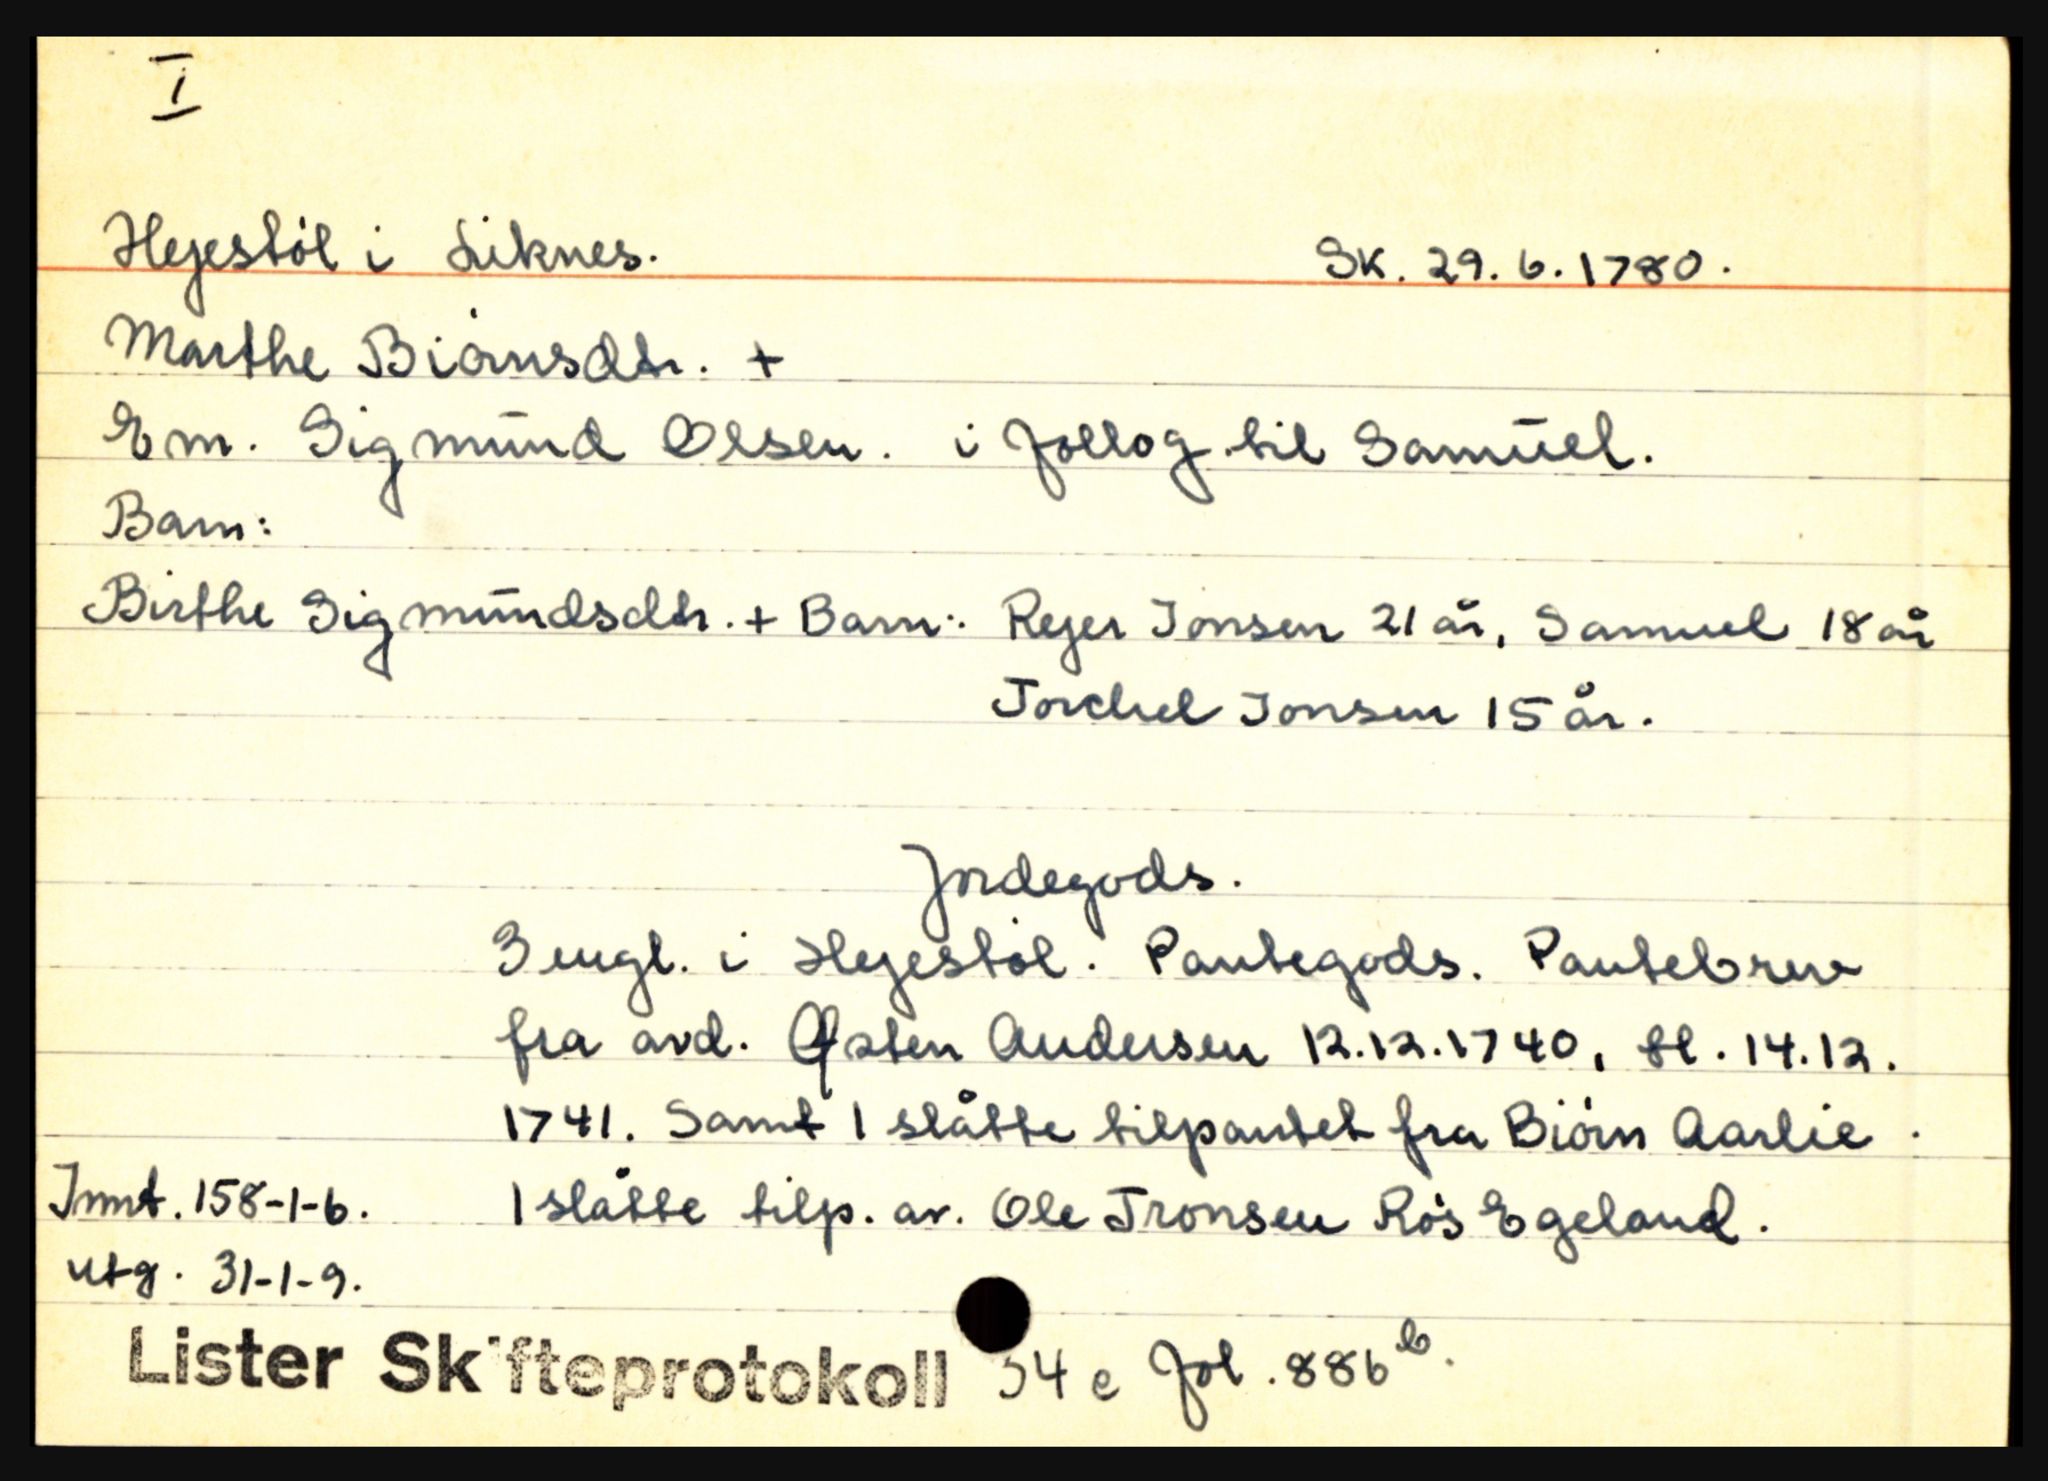 I
Hejestøl i Liknes. Sk. 29.6.1780.
Marthe Biørnsdtr. +
Em. Sigmund Olsen. i føllog til Samuel.
Barn:
Birthe Sigmundsdtr. + Barn: Rejer Jonsen 21 år, Samuel 18 år
Torchel Jonsen 15 år.
Jordegods.
3 engl. i Hejestøl. Pantegods. Pantebrev
fra avd. Østen Andersen 12.12.1740, tl. 14.12.
1741. Samt 1 slåtte tilpantet fra Biørn Aarlie.
Innt. 158-1-6. 1 slåtte tilp. av. Ole Tronsen Røs Egeland.
utg. 31-1-9.
Lister Skifteprotokoll 34 e Fol. 886 b.